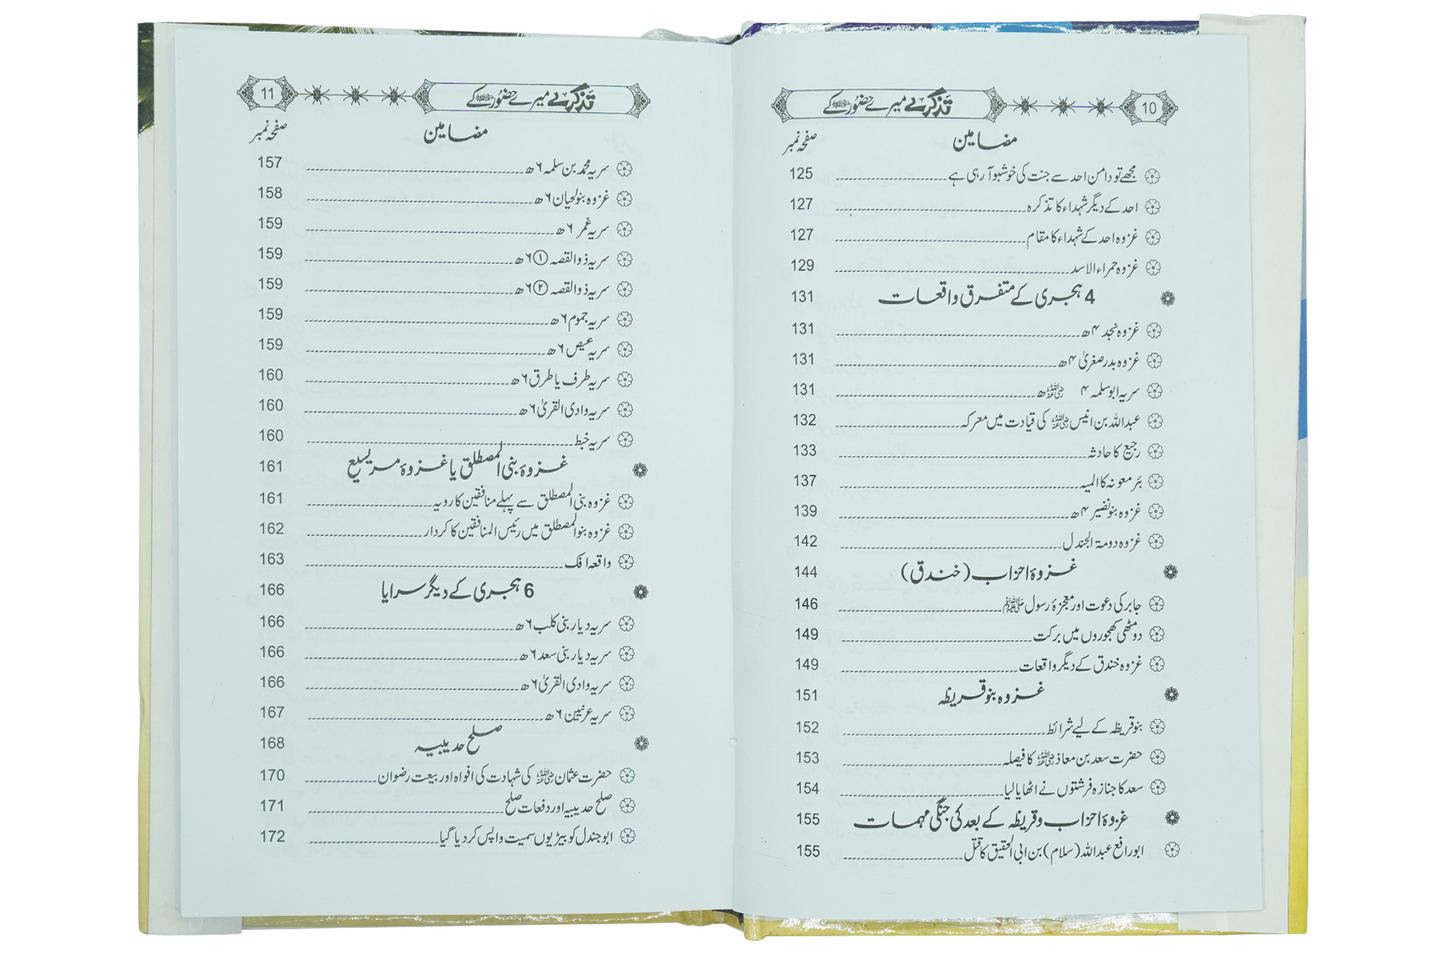 10 تذکرے میرے حضور ﷺ کے
مضامین صفحہ نمبر
مجھے تو دامن احد سے جنت کی خوشبو آ رہی ہے 125
احد کے دیگر شہداء کا تذکرہ 127
غزوہ احد کے شہداء کا مقام 127
غزوہ حمراء الاسد 129
4 ہجری کے متفرق واقعات 131
غزوہ نجد ۴ھ 131
غزوہ بدر صغریٰ ۴ھ 131
سریہ ابو سلمہ ۴ ﷺھ 131
عبداللہ بن انیس ﷺ کی قیادت میں معرکہ 132
رجیع کا حادثہ 133
بئر معونہ کا المیہ 137
غزوہ بنو نضیر ۴ھ 139
غزوہ دومۃ الجندل 142
غزوۂ احزاب (خندق) 144
جابر کی دعوت اور معجزۂ رسول ﷺ 146
دو مٹھی کھجوروں میں برکت 149
غزوہ خندق کے دیگر واقعات 149
غزوہ بنو قریظہ 151
بنو قریظہ کے لیے شرائط 152
حضرت سعد بن معاذ ﷺ کا فیصلہ 153
سعد کا جنازہ فرشتوں نے اٹھایا لیا 154
غزوۂ احزاب و قریظہ کے بعد کی جنگی مہمات 155
ابو رافع عبداللہ (سلام) بن ابی الحقیق کا قتل 155
تذکرے میرے حضور ﷺ کے 11
مضامین صفحہ نمبر
سریہ محمد بن سلمہ ۶ھ 157
غزوہ بنو لحیان ۶ھ 158
سریہ غمر ۶ھ 159
سریہ ذوالقصہ ① ۶ھ 159
سریہ ذوالقصہ ② ۶ھ 159
سریہ جموم ۶ھ 159
سریہ عیص ۶ھ 159
سریہ طرف یا طرق ۶ھ 160
سریہ وادی القریٰ ۶ھ 160
سریہ خبط 160
غزوۂ بنی المصطلق یا غزوۂ مریسیع 161
غزوہ بنی المصطلق سے پہلے منافقین کا رویہ 161
غزوہ بنو المصطلق میں رئیس المنافقین کا کردار 162
واقعہ افک 163
6 ہجری کے دیگر سرایا 166
سریہ دیار بنی کلب ۶ھ 166
سریہ دیار بنی سعد ۶ھ 166
سریہ وادی القریٰ ۶ھ 166
سریہ عرنیین ۶ھ 167
صلح حدیبیہ 168
حضرت عثمان ﷺ کی شہادت کی افواہ اور بیعت رضوان 170
صلح حدیبیہ اور دفعات صلح 171
ابو جندل کو بیڑیوں سمیت واپس کر دیا گیا 172